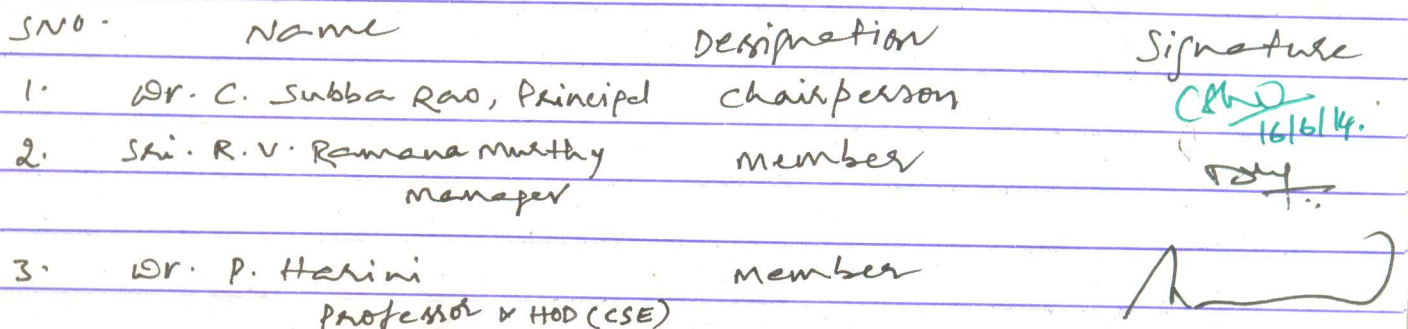 SNO. Name Designation Signature
1. Dr. C. Subba Rao, Principal Chairperson
16/6/14.
2. Sri. R.V. Ramana Murthy Member
Manager
3. Dr. P. Harini Member
Professor & HOD (CSE)